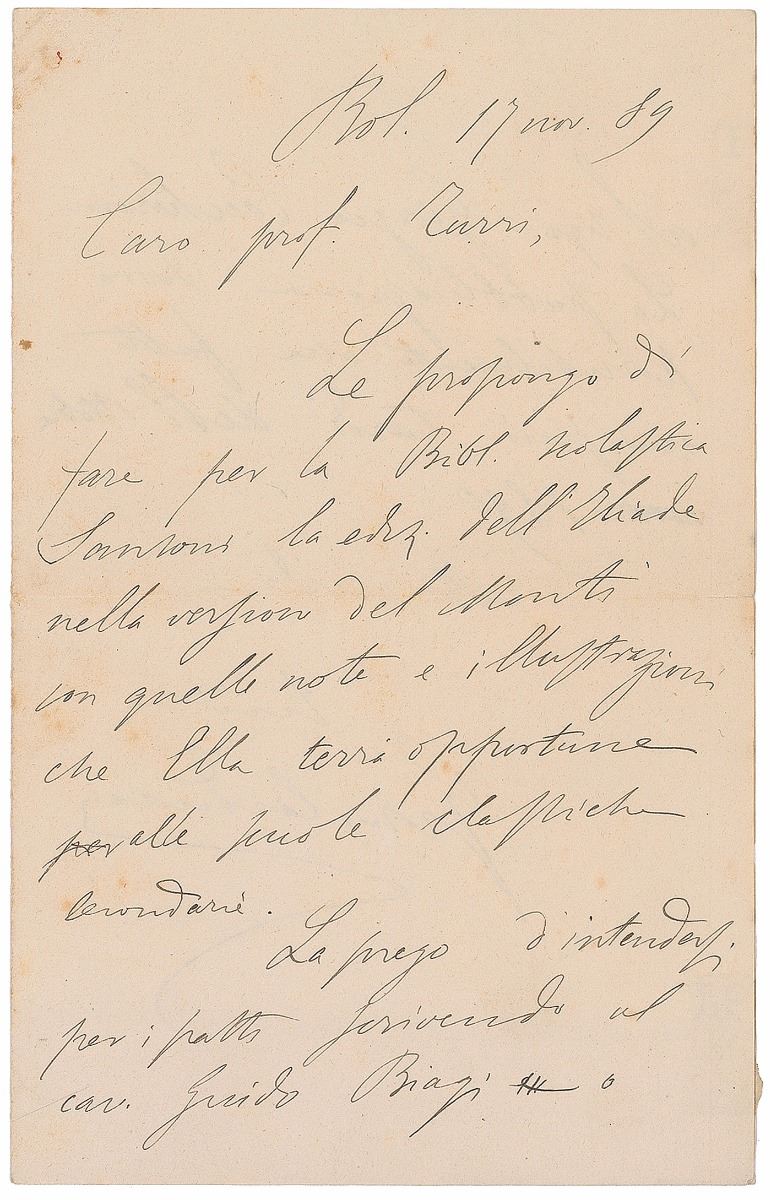 Bol. 17 nov. 89
Caro prof. Turri,
Le propongo di
fare per la Bibl. scolastica
Sansoni la ediz. dell'Iliade
nella version del Monti
con quelle note e illustrazioni
che Ella terrà opportune
per alle scuole classiche
secondarie.
La prego d'intendersi
per i patti scrivendo al
cav. Guido Biagi o